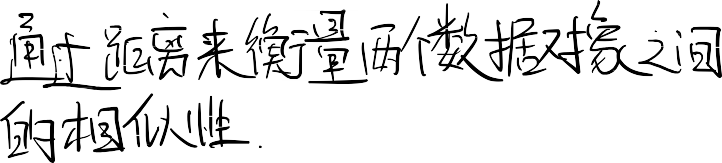 通过距离来衡量两个数据对象之间
的相似性.